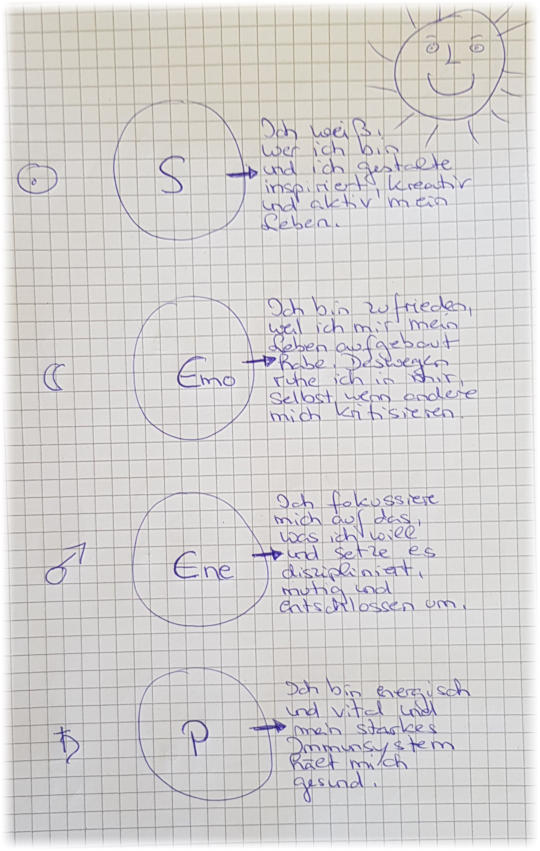 ☉
S
Ich weiß,
wer ich bin
und ich gestalte
inspiriert, kreativ
und aktiv mein
Leben.
☾
Emo
Ich bin zufrieden,
weil ich mir mein
Leben aufgebaut
habe. Deswegen
ruhe ich in mir,
selbst wenn andere
mich kritisieren.
♂
Ene
Ich fokussiere
mich auf das,
was ich will
und setze es
diszipliniert,
mutig und
entschlossen um.
♄
P
Ich bin energisch
und vital und
mein starkes
Immunsystem
hält mich
gesund.